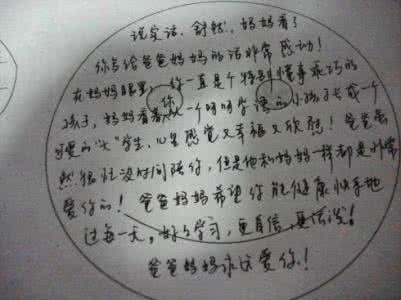 说实话，舒然，妈妈看了
你写给爸爸妈妈的话非常感动！
在妈妈眼里，你一直是个特别懂事乖巧的
孩子，妈妈看着你从一个呀呀学语的小孩子长成一个
可爱的“大”学生，心里感觉又幸福又欣慰！爸爸虽
然很忙没时间陪你，但是他和妈妈一样都是非常
爱你的！爸爸妈妈希望你能健康快乐地
过每一天，好好学习，更自信，更活泼！
爸爸妈妈永远爱你！